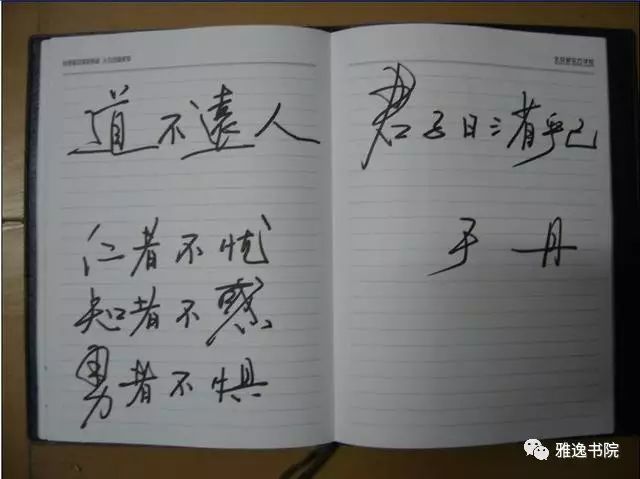 道不遠人
仁者不忧
知者不惑
勇者不惧
君子日三省乎己
于丹
雅逸书院